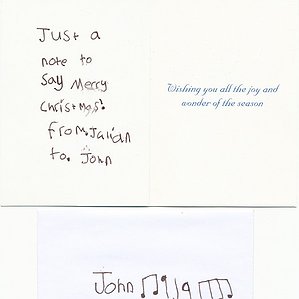 Just a
note to
say Merry
Christmas!
from. Julian
to. John
Wishing you all the joy and
wonder of the season
John